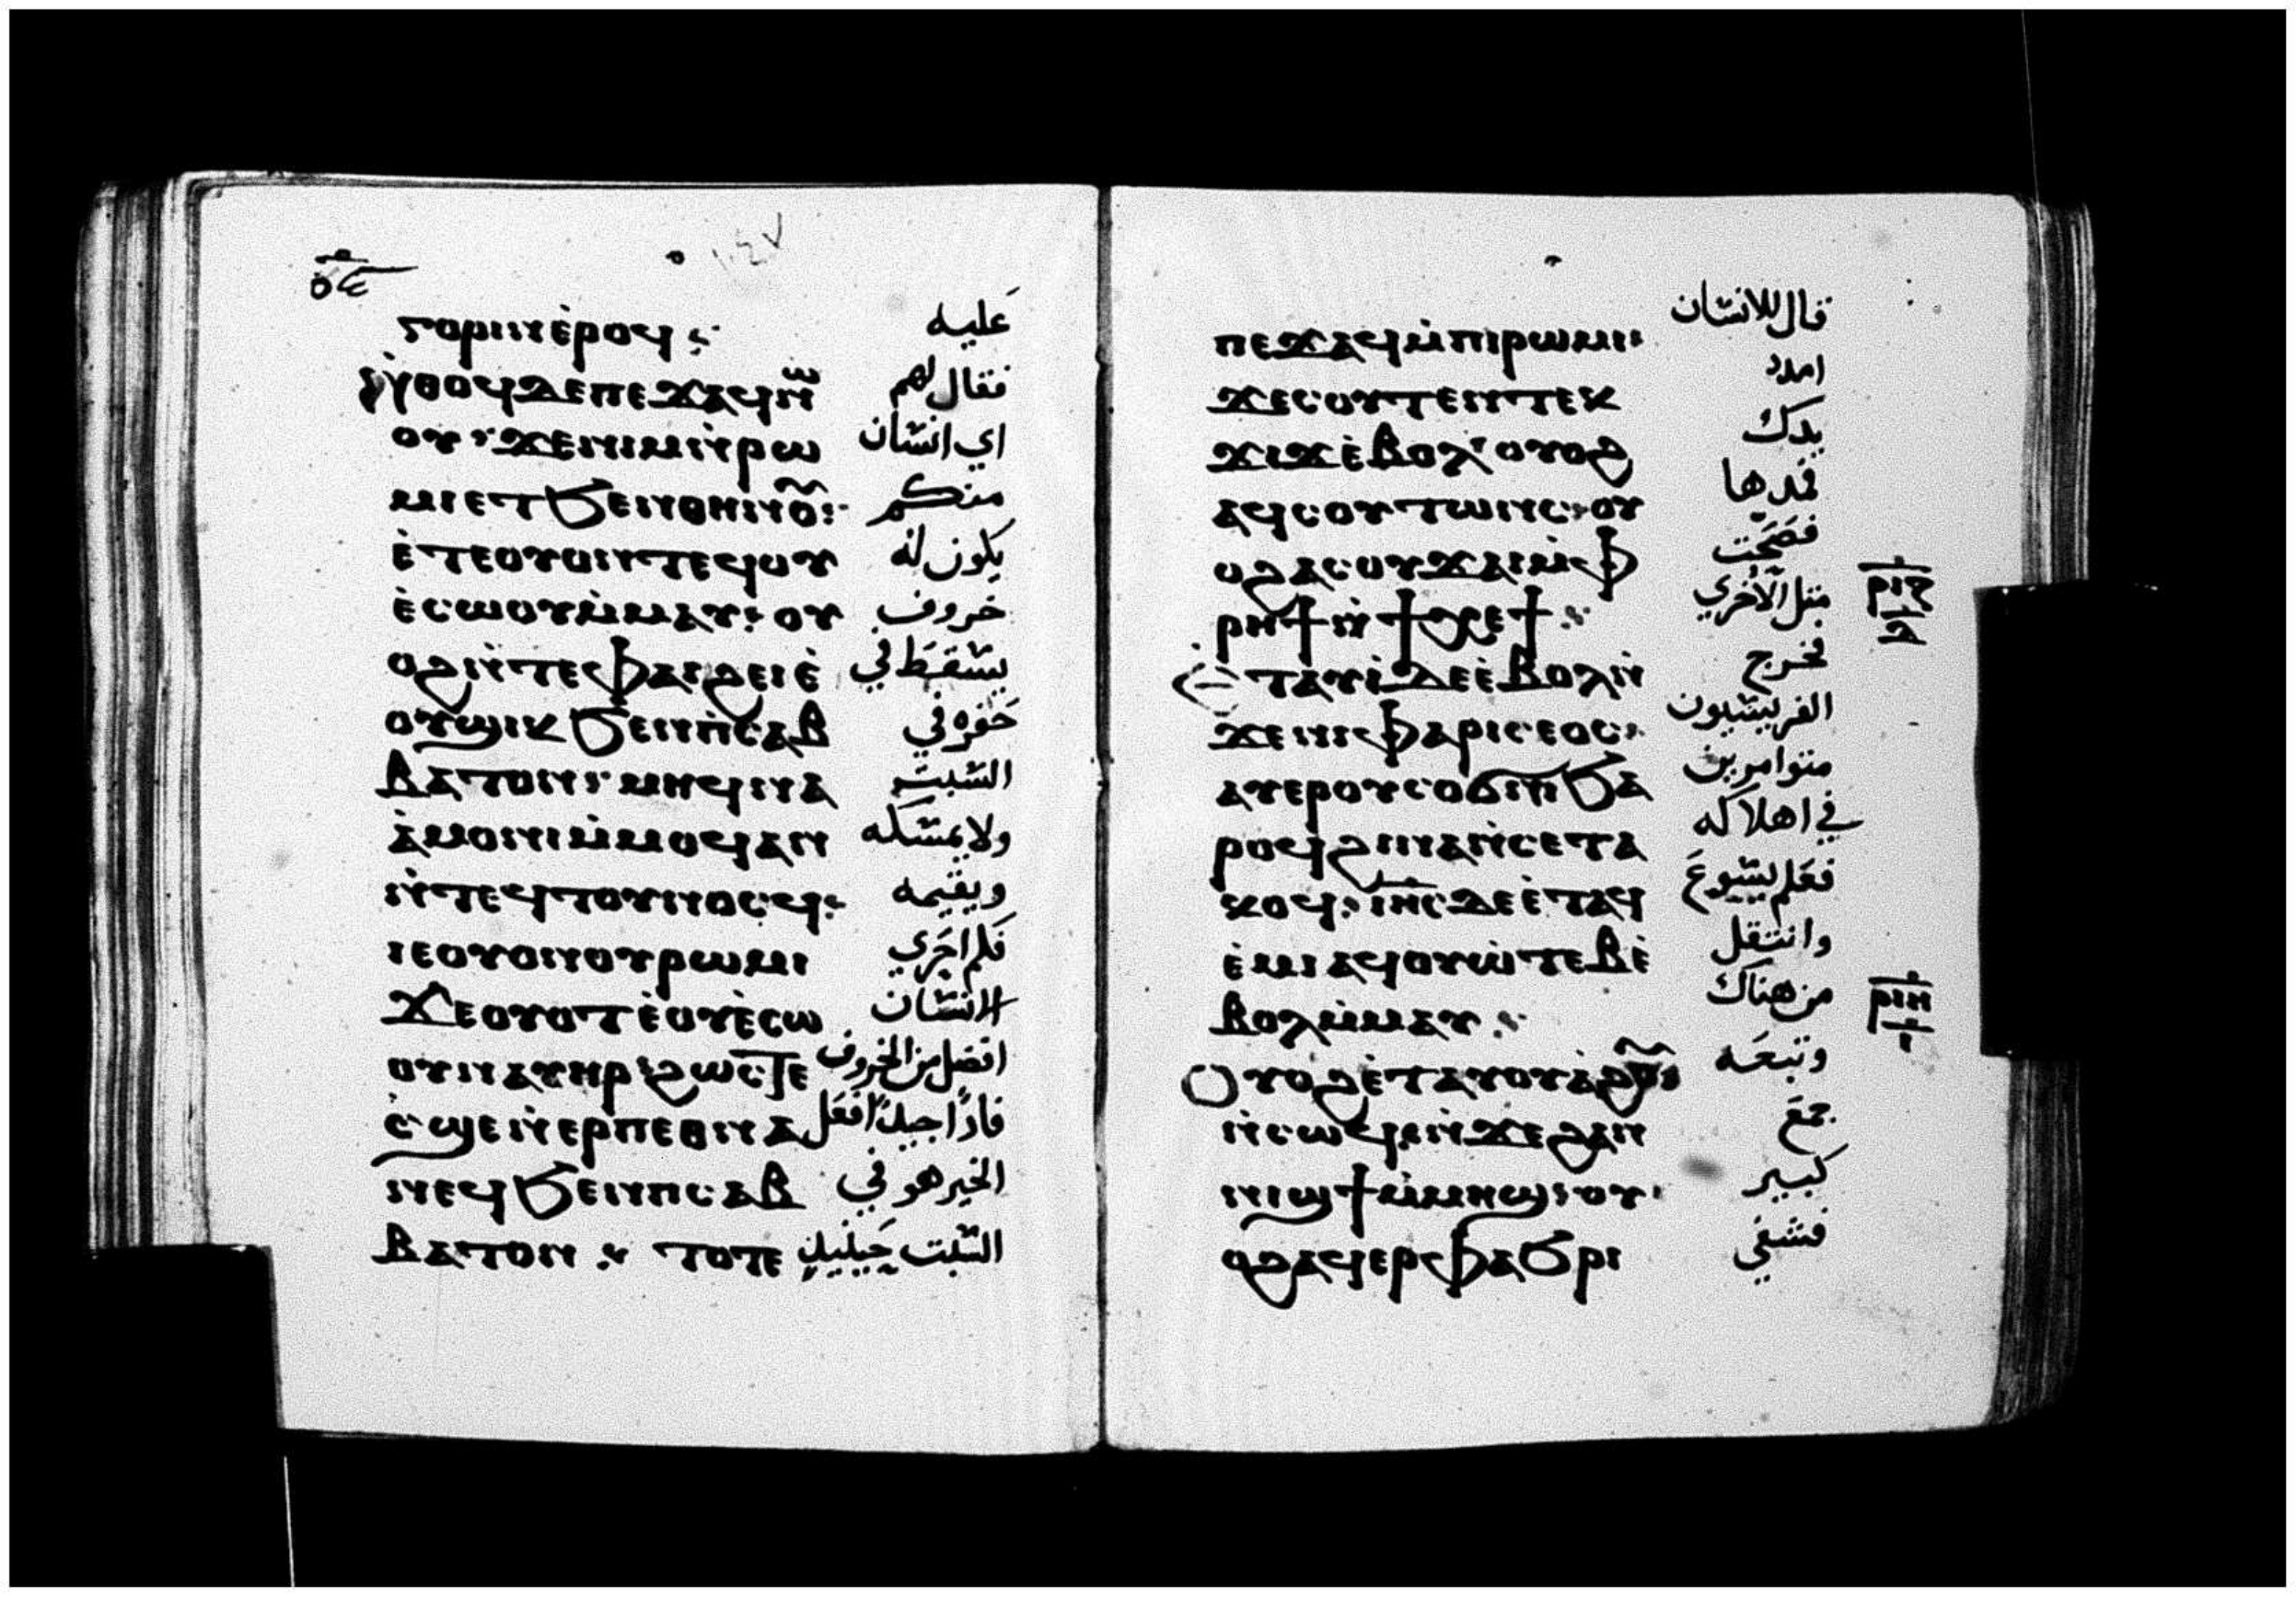 ⲅⲟⲣⲓⲛⲉ̀ⲣⲟϥ⁖ عليه
ⲛ̀ⲑⲟϥⲇⲉⲡⲉϫⲁϥⲛⲱ فقال لهم
ⲟⲩ·ϫⲉⲛⲓⲙⲛ̀ⲣⲱ اي انسان
ⲙⲓⲉⲧϧⲉⲛⲑⲏⲛⲟⲩ: منكم
ⲉ̀ⲧⲉⲟⲩⲟⲛⲧⲉϥⲟⲩ يكون له
ⲉ̀ⲥⲱⲟⲩⲙ̀ⲙⲁⲩ:ⲟⲩ خروف
ⲟϩⲛ̀ⲧⲉⲫⲁⲓϩⲉⲓⲉ̀ يسقط في
ⲟⲩϣⲓⲕϧⲉⲛⲡ̀ⲥⲁⲃ حفره في
ⲃⲁⲧⲟⲛ·ⲙⲏϥⲛⲁ السبت
ⲁ̀ⲙⲟⲛⲓⲙ̀ⲙⲟϥⲁⲛ ولا يمسكه
ⲛ̀ⲧⲉϥⲧⲟⲩⲛⲟⲥϥ: ويقيمه
ⲓⲉⲟⲩⲟⲛⲟⲩⲣⲱⲙⲓ فكم احري
ϫⲉⲟⲩⲟⲧⲉ̀ⲟⲩⲉ̀ⲥⲱ الانسان
ⲟⲩⲛⲁⲩⲏⲣ·ϩⲱⲥⲧⲉ افضل من الخروف
ⲥ̀ϣⲉⲛ̀ⲉⲣⲡⲉⲑⲛⲁ فاذًا جيدًا فعل
ⲛⲉϥϧⲉⲛⲡⲥⲁⲃ الخير هو في
ⲃⲁⲧⲟⲛ: ⲧⲟⲧⲉ السبت حينيذٍ
ⲡⲉϫⲁϥⲙ̀ⲡⲓⲣⲱⲙⲓ: قال للانسان
ϫⲉⲥⲟⲩⲧⲉⲛⲧⲉⲕ امدد
ϫⲓϫⲉ̀ⲃⲟⲗ·ⲟⲩⲟϩ يدك
ⲁϥⲥⲟⲩⲧⲱⲛⲥ·ⲟⲩ فمدها
ⲟϩⲁⲥⲟⲩϫⲁⲓⲙ̀ⲫ فصحت
ⲣⲏϯⲛ̀ϯⲭⲉϯ: مثل الاخري ⲣⲓⲍ
ⲉ̀ⲧⲁⲩⲓ̀ⲇⲉⲉ̀ⲃⲟⲗⲛ̀ فخرج
ϫⲉⲛⲓⲫⲁⲣⲓⲥⲉⲟⲥ: الفريسيون
ⲁⲩⲉⲣⲟⲩⲥⲟϭⲛⲓϧⲁ متوامرين
ⲣⲟϥϩⲓⲛⲁⲛ̀ⲥⲉⲧⲁ في اهلاكه
ⲕⲟϥ:ⲓⲏⲥⲇⲉⲉ̀ⲧⲁϥ فعلم يسوع
ⲉ̀ⲙⲓⲁϥⲟⲩⲱ̀ⲧⲉⲃⲉ̀ وانتقل
ⲃⲟⲗⲙ̀ⲙⲁⲩ: من هناك ⲣⲓⲏ
ⲟⲩⲟϩⲉ̀ⲧⲁⲩⲟⲩⲁ̀ϩⲟⲩ: وتبعه
ⲛ̀ⲥⲱϥⲛ̀ϫⲉϩⲁⲛ جمع
ⲛⲓϣϯⲙ̀ⲙⲏϣ:ⲟⲩ كبير
ⲟϩⲁϥⲉⲣⲫⲁϧⲣⲓ فشفي